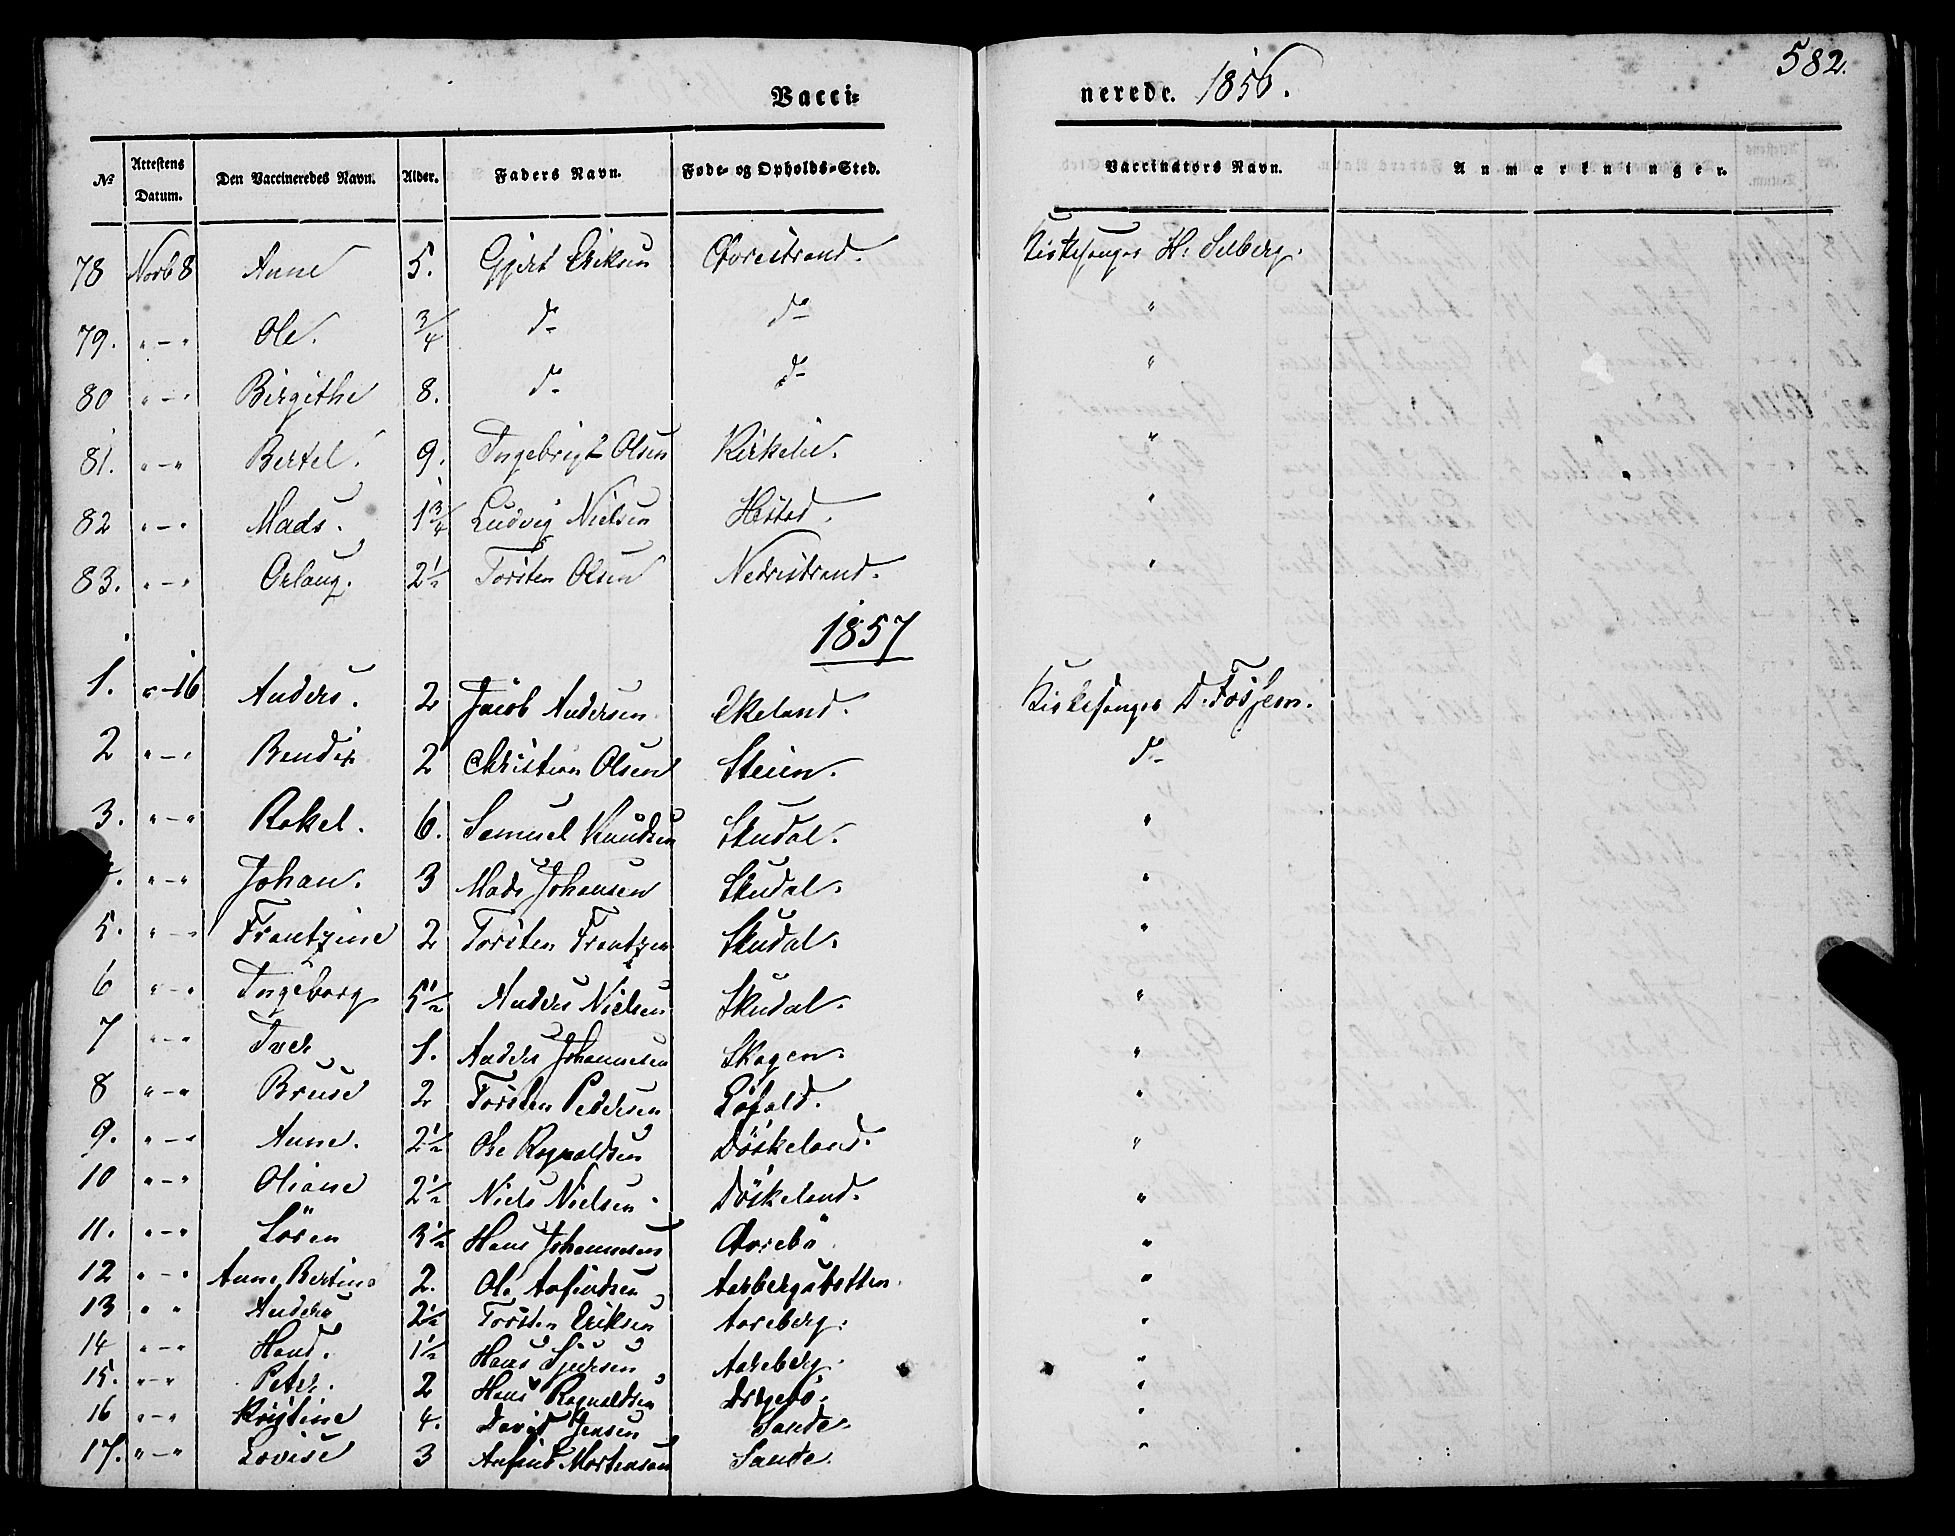 582.
Vacci- nerede. 1856.
№ Attestens Datum. Den Vaccineredes Navn. Alder. Faders Navn. Føde- og Opholds-Sted. Vaccinators Navn. Anmærkninger.
78 Novb 8 Anne 5. Gjert Eriksen Kirkesanger H. Selberg.
79. " - " Ole. 3/4 do do "
80 " - " Birgithe 8. do do "
81. " - " Bertel. 9. Ingebrigt Olsen Kirkelie. "
82 " - " Mads. 1 3/4 Ludvig Nielsen Hestad. "
83. " - " 2 1/2 Torsten Olsen Nedrestrand. "
1857
1. " - 16 Anders. 2 Jacob Andersen Ekeland. Kirkesanger D. Fosheim.
2 " - " Bendix 2 Christian Olsen Steien. do
3. " - " Rakel. 6. Samuel Knudsen Skudal. "
" - " Johan. 3 Mads Johansen Skudal. "
5. " - " Frantzine 2 Torsten Frantzen Skudal. "
6 " - " Ingeborg 5 1/2 Anders Nielsen Skudal. "
7 " - " Iver 1. Anders Johannesen Skogen. "
8 " - " Bruse 2 Torsten Pedersen Løfald. "
9. " - " Anne. 2 1/2 Ole Ragnaldsen Döskeland. "
10 " - " Oliane 2 1/2 Niels Nielsen. Döskeland. "
11. " - " Sören 3 1/2 Hans Johannesen Aarebö "
12 " - " Anne Bertine 2. Ole Arfindsen Aarbergsbotten. "
13 " " Anders 2 1/2 Torsten Eriksen Aareberg. "
14 " - " Hans. 1 1/2 Hans Sjursen Aareberg. "
15. " - " Peter. 2 Hans Ragnaldsen "
16 " - " Kristine 4. David Jensen Sande. "
17. " - " Lovise 3 Arfind Mortensen Sande. "